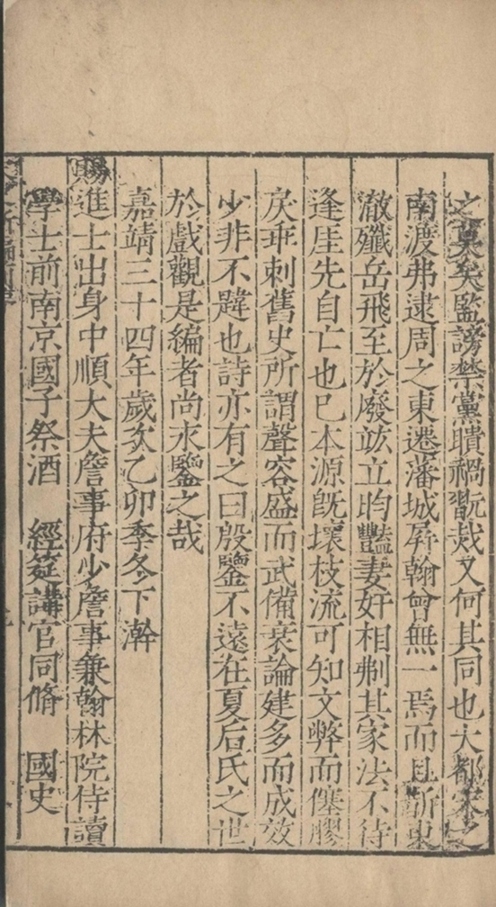 之矣監謗禁黨聵禍翫烖又何其同也大都宋之
南渡弗逮周之東遷藩城屏翰曾無一焉而且斬東
澈殲岳飛至於廢竑立昀豔妻奸相剸其家法不待
逢厓先自亡也已本源旣壞枝流可知文弊而僿膠
戾乖刺舊史所謂聲容盛而武備衰論建多而成效
少非不韙也詩亦有之曰殷鑒不遠在夏后氏之世
於戲觀是編者尚永鑒之哉
嘉靖三十四年歲次乙卯季冬下澣
賜進士出身中順大夫詹事府少詹事兼翰林院侍讀
學士前南京國子祭酒　經筵講官同脩　國史